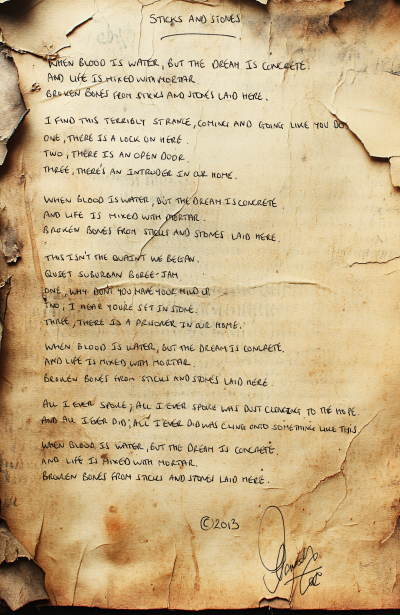 STICKS AND STONES
WHEN BLOOD IS WATER, BUT THE DREAM IS CONCRETE.
AND LIFE IS MIXED WITH MORTAR.
BROKEN BONES FROM STICKS AND STONES LAID HERE.
I FIND THIS TERRIBLY STRANGE, COMING AND GOING LIKE YOU DO
ONE, THERE IS A LOCK ON HERE.
TWO, THERE IS AN OPEN DOOR.
THREE, THERE'S AN INTRUDER IN OUR HOME.
WHEN BLOOD IS WATER, BUT THE DREAM IS CONCRETE.
AND LIFE IS MIXED WITH MORTAR.
BROKEN BONES FROM STICKS AND STONES LAID HERE.
THIS ISN'T THE QUAINT WE BEGAN.
QUIET SUBURBAN
ONE, WHY DON'T YOU MAKE YOUR MIND UP.
TWO, I HEAR YOU'RE SET IN STONE.
THREE, THERE IS A PRISONER IN OUR HOME.
WHEN BLOOD IS WATER, BUT THE DREAM IS CONCRETE.
AND LIFE IS MIXED WITH MORTAR.
BROKEN BONES FROM STICKS AND STONES LAID HERE.
ALL I EVER SPOKE; ALL I EVER SPOKE WAS DUST CLINGING TO THE HOPE.
AND ALL I EVER DID; ALL I EVER DID WAS CLING ONTO SOMETHING LIKE THIS.
WHEN BLOOD IS WATER, BUT THE DREAM IS CONCRETE.
AND LIFE IS MIXED WITH MORTAR.
BROKEN BONES FROM STICKS AND STONES LAID HERE.
©2013